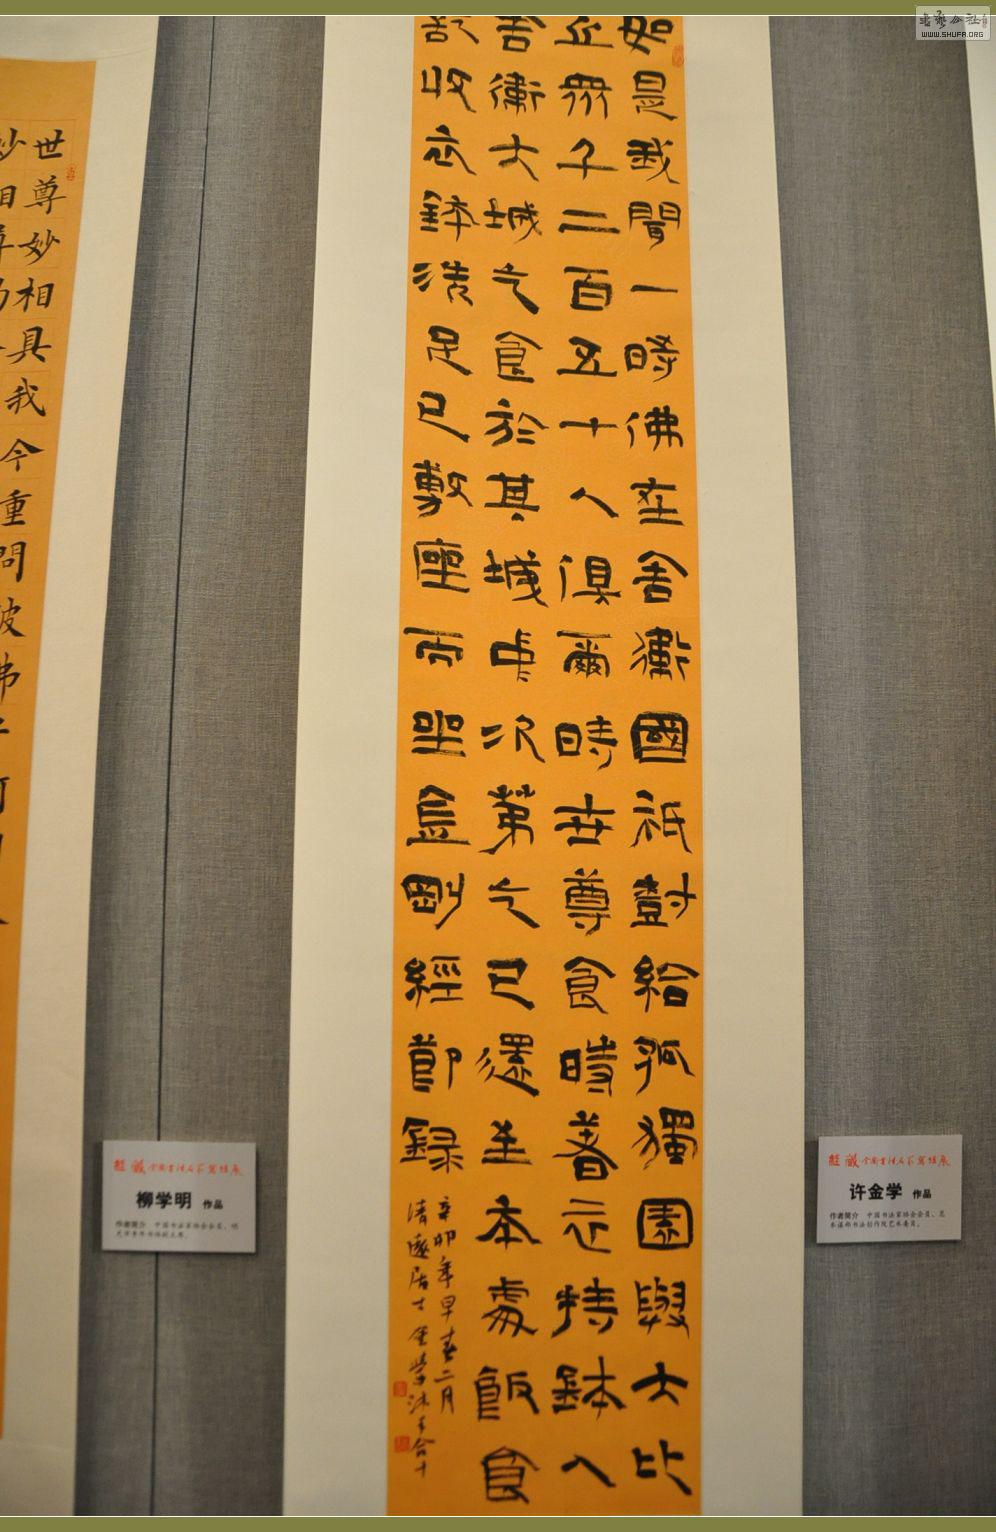 如是我聞一時佛在舍衛國祇樹給孤獨園與大比
丘眾千二百五十人俱爾時世尊食時著衣持鉢入
舍衛大城乞食於其城中次第乞已還至本處飯食
訖收衣鉢洗足已敷座而坐
金剛經節錄
辛卯年早春二月
清遠居士金學沐手合十
世尊妙相具我今重問彼
柳学明 作品
作者简介 中国书法家协会会员、
许金学 作品
作者简介 中国书法家协会会员、
WWW.SHUFA.ORG